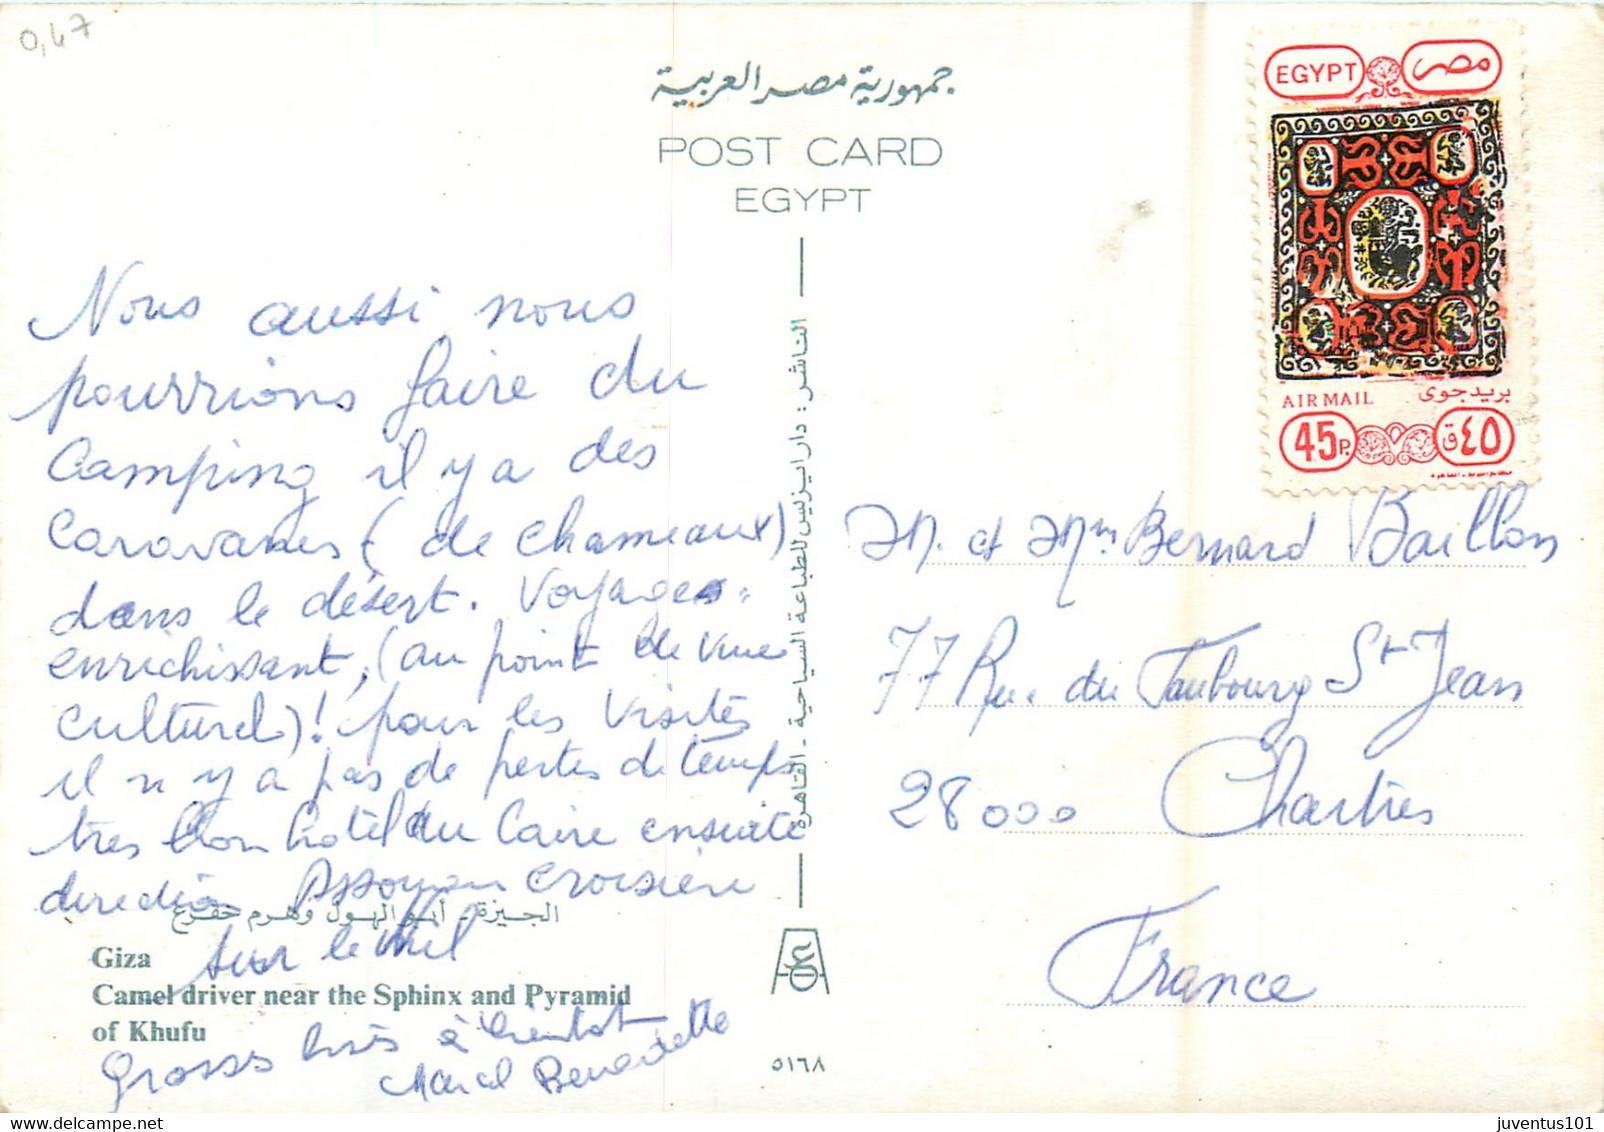 0,47
جمهورية مصر العربية
POST CARD
EGYPT
EGYPT
مصر
AIR MAIL
بريد جوى
45 P.
٤٥ ق
Nous aussi nous
pourrions faire du
Camping il y a des
Caravanes (de chameaux)
dans le désert. Voyages
enrichissant, (au point de vue
culturel)! pour les visites
il n y a pas de pertes de temps
très bon hotel du Caire ensuite
direction Assouan croisière
sur le Nil
Grosses bises à bientot
Marcel Bernadette
الجيزة - أبو الهول وهرم خفرع
Giza
Camel driver near the Sphinx and Pyramid
of Khufu
الناشر : دار ايزيس للطباعة السياحية - القاهرة
٥١٦٨
M. et Mm Bernard Baillon
77 Rue du Faubourg St Jean
28000 Chartres
France
juventus101